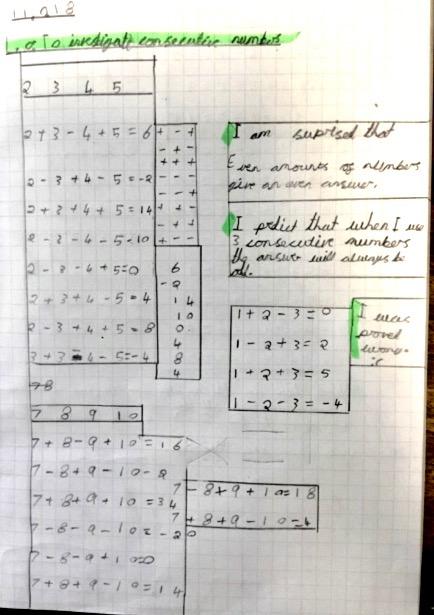 11.9.18
L.O. To investigate consecutive numbers
2 3 4 5
2+3-4+5=6 + - +
- + -
+ + +
2-3+4-5=-2 - - -
- - +
2+3+4+5=14 + + -
- + +
2-3-4-5=-10 + - -
2-3-4+5=0
2+3+4-5=4
2-3+4+5=8
2+3-4-5=-4
6
-2
14
10
0
4
8
4
I am suprised that
Even amounts of numbers
give an even answer.
I predict that when I use
3 consecutive numbers
the answer will always be
odd.
1+2-3=0
1-2+3=2
1+2+3=5
1-2-3=-4
I was
proved
wrong.
7 8 9 10
7+8-9+10=16
7-8+9-10-2
7+8+9+10=34
7-8-9-10=-20
7-8-9+10=0
7+8+9-10=14
7-8+9+10=18
7+8+9-10=4